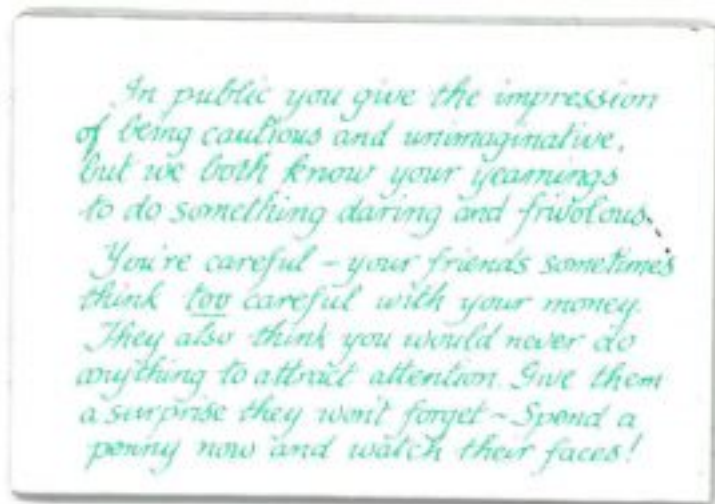 In public you give the impression
of being cautious and unimaginative,
but we both know your yearnings
to do something daring and frivolous.
You're careful – your friends sometimes
think too careful with your money.
They also think you would never do
anything to attract attention. Give them
a surprise they won't forget ~ Spend a
penny now and watch their faces!